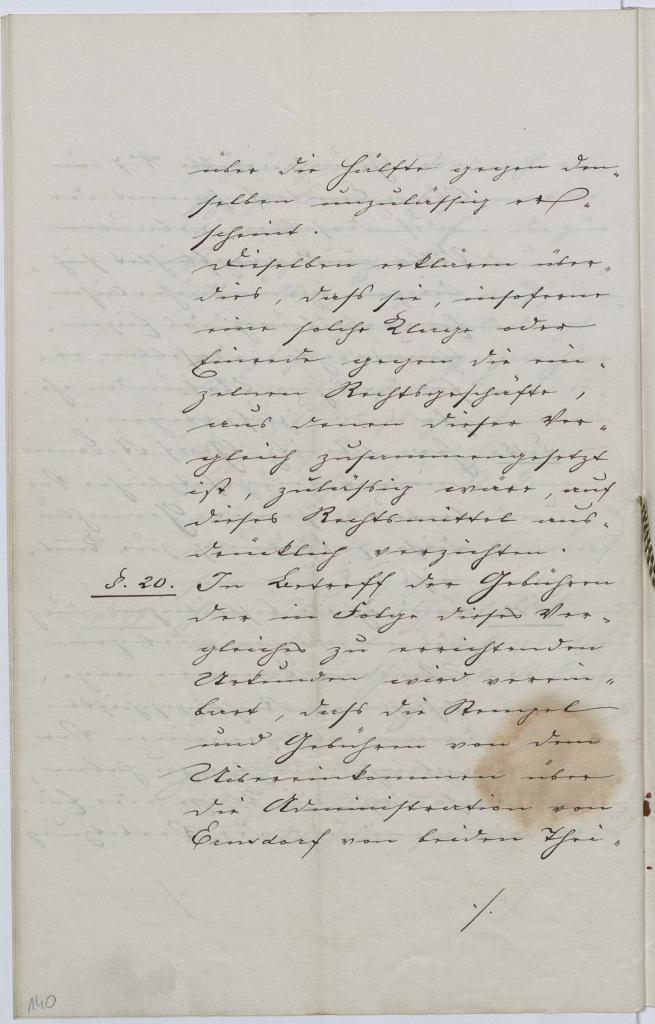 über die Hälfte gegen den-
selben unzulässig er-
scheint.
Dieselben erklären über-
dies, daß sie, insoferne
eine solche Klage oder
Einrede gegen die ein-
zelnen Rechtsgeschäfte,
aus denen dieser Ver-
gleich zusammengesetzt
ist, zulässig wäre, auf
dieses Rechtsmittel aus-
drücklich verzichten.
§. 20. In Betreff der Gebühren
der in Folge dieses Ver-
gleiches zu errichtenden
Urkunden wird verein-
bart, daß die Stempel
und Gebühren von dem
Uibereinkommen über
die Administration von
Ernsdorf von beiden Thei-
./.
140